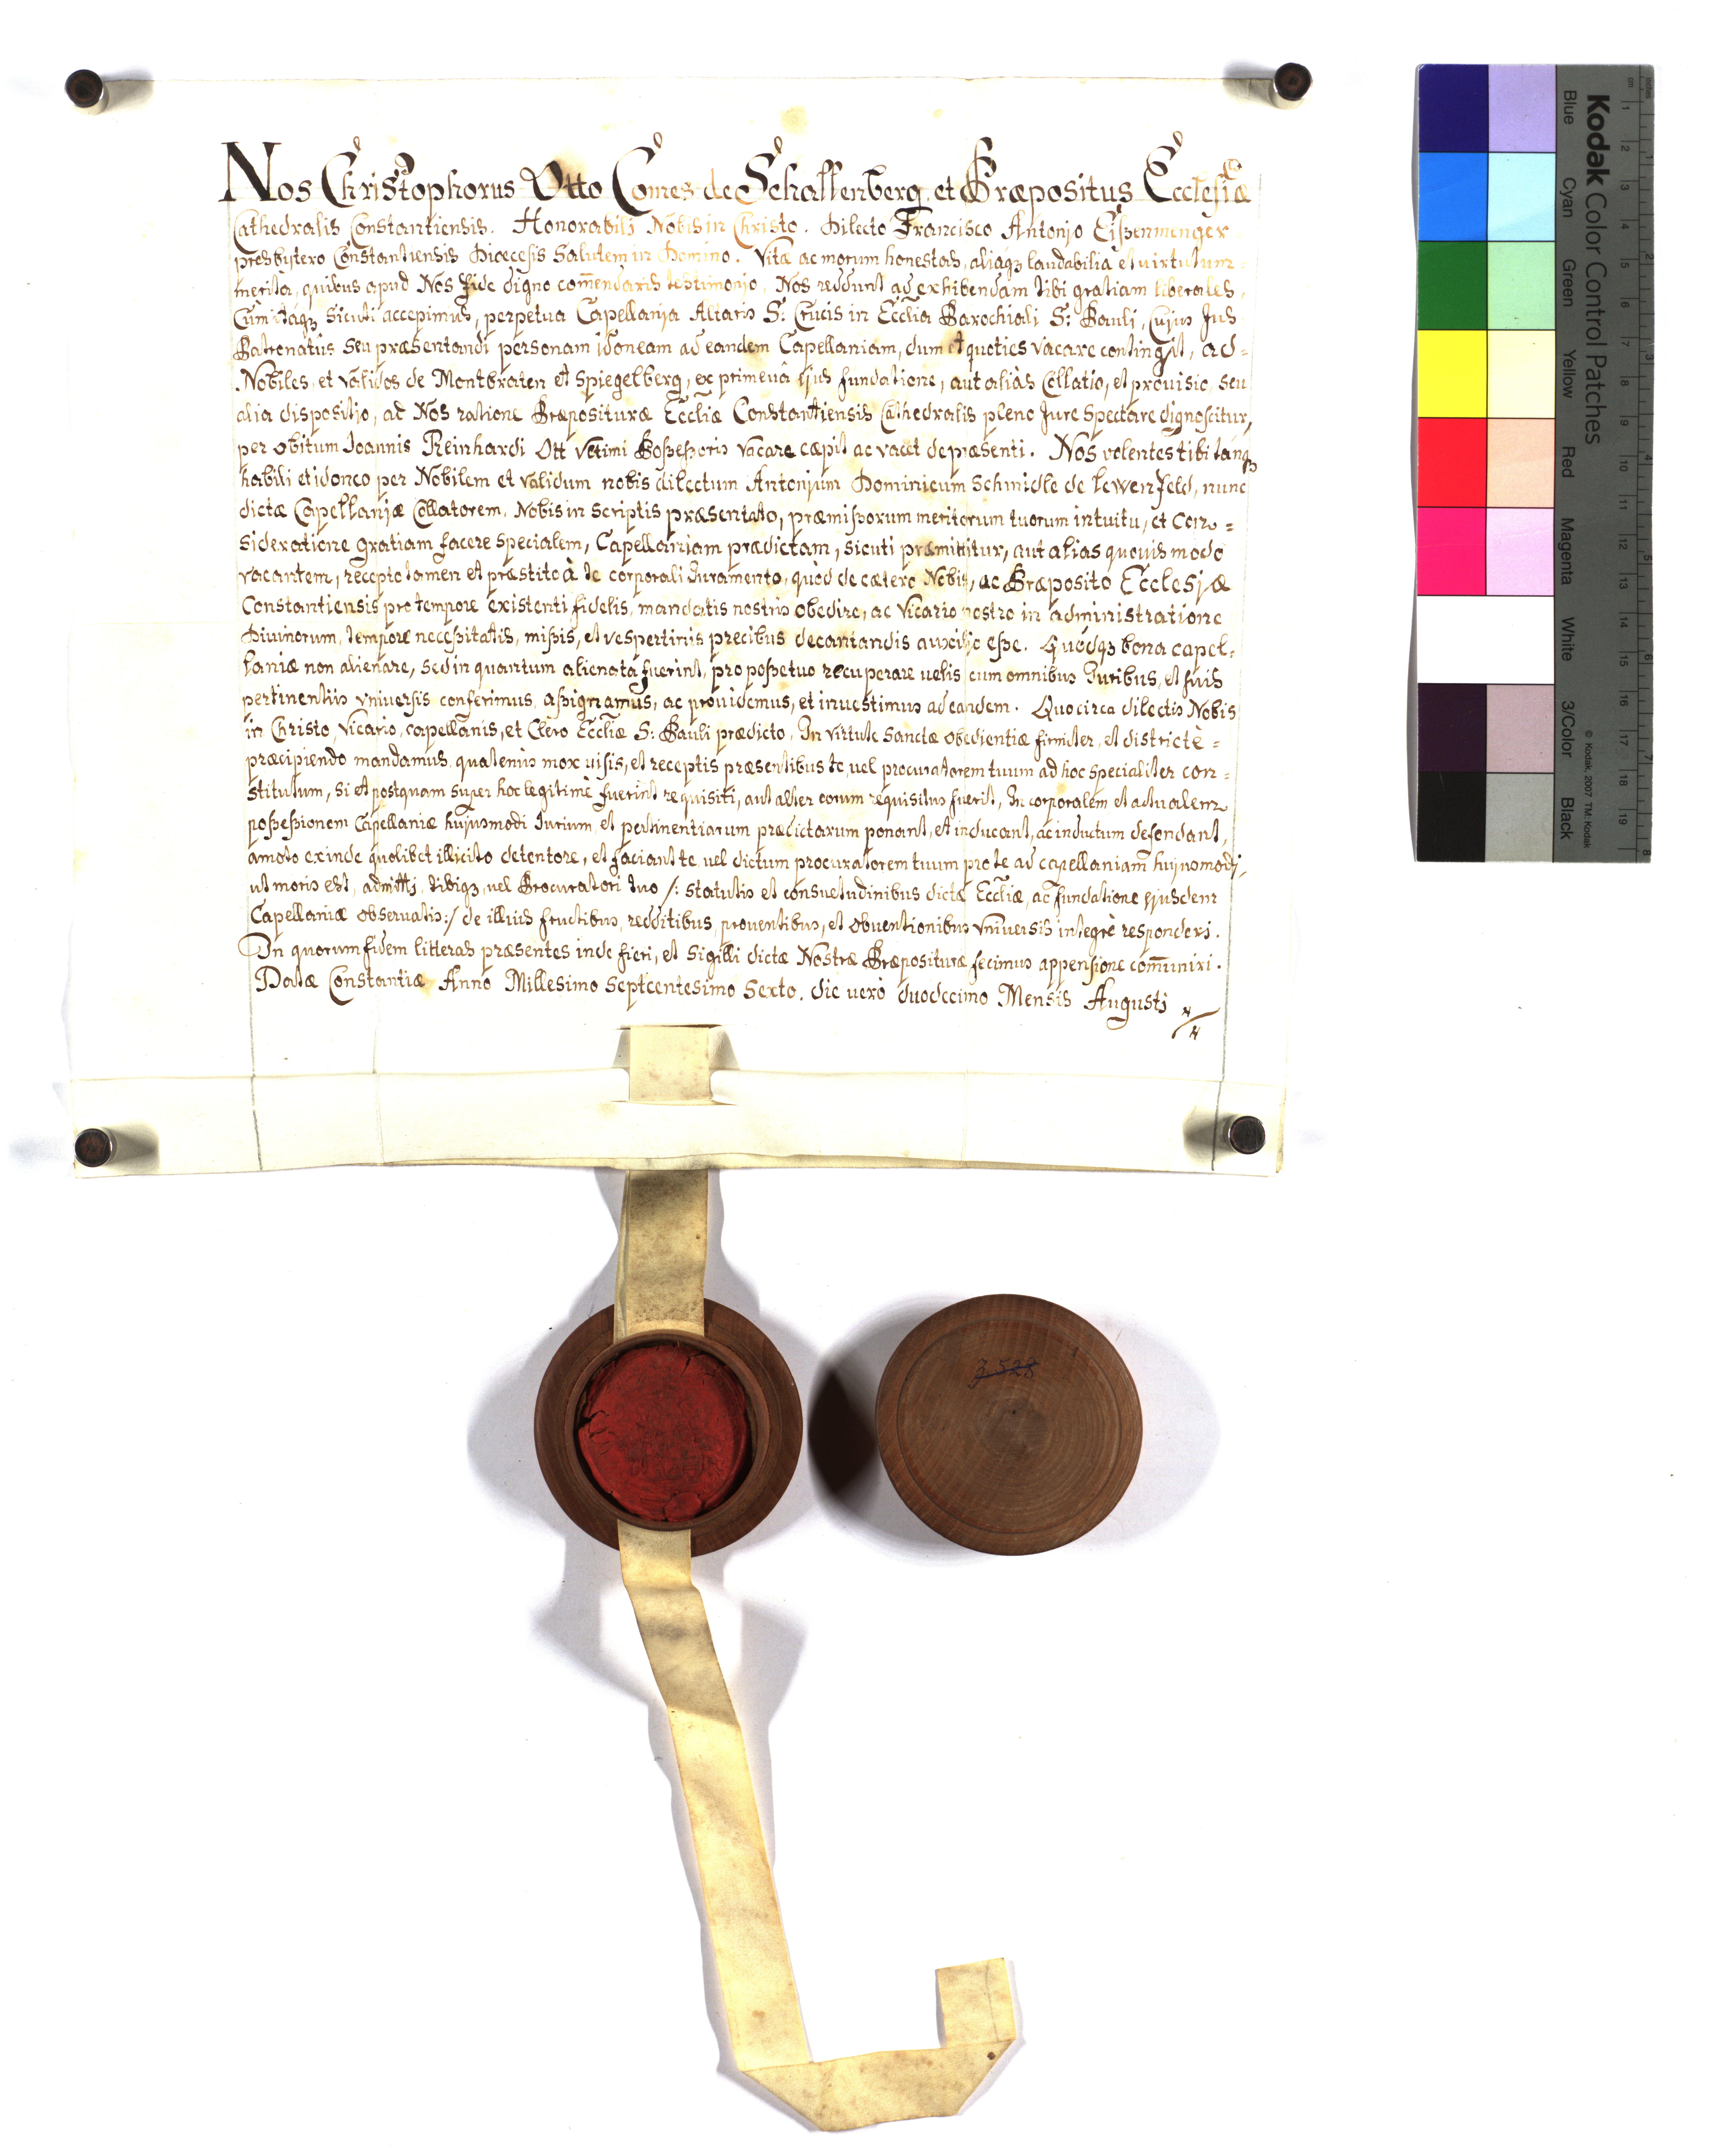 Nos Christophorus Otto Comes de Schallenberg, et Præpositus Ecclesiæ
Cathedralis Constantiensis. Honorabili Nobis in Christo. Dilecto Francisco Antonio Eißenminger
presbytero Constantiensis Diœcesis Salutem in Domino. Vitæ ac morum honestas, aliaqz laudabilia et virtutum
merita, quibus apud Nos fide digno com̄endaris testimonio, Nos reddunt ad exhibendam tibi gratiam liberales.
Cùm itaqz sicuti accepimus, perpetua Capellania Altaris S: Crucis in Ecclia Parochiali S: Pauli, Cujus Jus
Patronatûs seu præsentandi personam idoneam ad eandem Capellaniam, dum et quoties vacare contingit, ad=
Nobiles et validos de Montbraten et Spiegelberg, ex primevâ ejus fundatione, aut aliàs Collatio, et provisio, seu
alia dispositio, ad Nos ratione Præposituræ Eccliæ Constantiensis Cathedralis pleno Jure Spectare dignoscitur,
per obitum Joannis Reinhardi Ott Vltimi Poßeßoris vacare cæpit ac vacet de præsenti. Nos volentes tibi tanqz
habili et idoneo per Nobilem et validum nobis dilectum Antonium Dominicum Schmidle de Lewenfeld, nunc
dictæ Capellaniæ Collatorem, Nobis in Scriptis præsentato, præmißorum meritorum tuorum intuitu, et Con=
sideratione gratiam facere Specialem, Capellaniam prædictam, sicuti præmittitur, aut alias quovis modo
vacantem, recepto tamen et præstito à te corporali Juramento, quòd de cætero Nobis, ac Præposito Ecclesiæ
Constantiensis pro tempore existenti fidelis, mandatis nostris obedire, ac Vicario nostro in administratione
Divinorum, tempore neceßitatis, mißis, et vespertinis precibus decantandis auxilio eße. Quodqz bona capel=
laniæ non alienare, sed in quantum alienata fuerint, pro poße tuo recuperare velis cum omnibus Juribus, et suis
pertinentiis vniversis conferimus, aßignamus, ac providemus, et investimus ad eandem. Quocirca dilectis Nobis
in Christo, Vicario, capellanis, et Clero Eccliæ S: Pauli prædicto, In virtute Sanctæ obedientiæ firmiter, et districtè=
præcipiendo mandamus, quatenus mox visis, et receptis præsentibus te, vel procuratorem tuum ad hoc specialiter con=
stitutum, si et postquam super hoc legitimè fuerint requisiti, aut alter eorum requisitus fuerit, In corporalem et actualem
poßeßionem Capellaniæ hujusmodi Jurium, et pertinentiarum prædictarum ponant, et inducant, ac inductum defendant,
amoto exinde quolibet illicito detentore, et faciant te vel dictum procuratorem tuum pro te ad capellaniam hujusmodi,
ut moris est, admitti, tibiqz vel Procuratori tuo /: statutis et consuetudinibus dictæ Eccliæ, ac fundatione ejusdem
Capellaniæ observatis :/ de illius fructibus, redditibus, proventibus, et obventionibus Vniversis integrè responderi.
In quorum fidem litteras præsentes inde fieri, et sigilli dictæ Nostræ Præposituræ fecimus appensione com̄uniri.
Datæ Constantiæ Anno Millesimo Septcentesimo Sexto. die verò duodecimo Mensis Augusti
3528
Kodak Color Control Patches
© Kodak, 2007 TM: Kodak
Blue Cyan Green Yellow Red Magenta White 3/Color Black
cm 1 2 3 4 5 6 7 8 9 10 11 12 13 14 15 16 17 18 19
inches 1 2 3 4 5 6 7 8